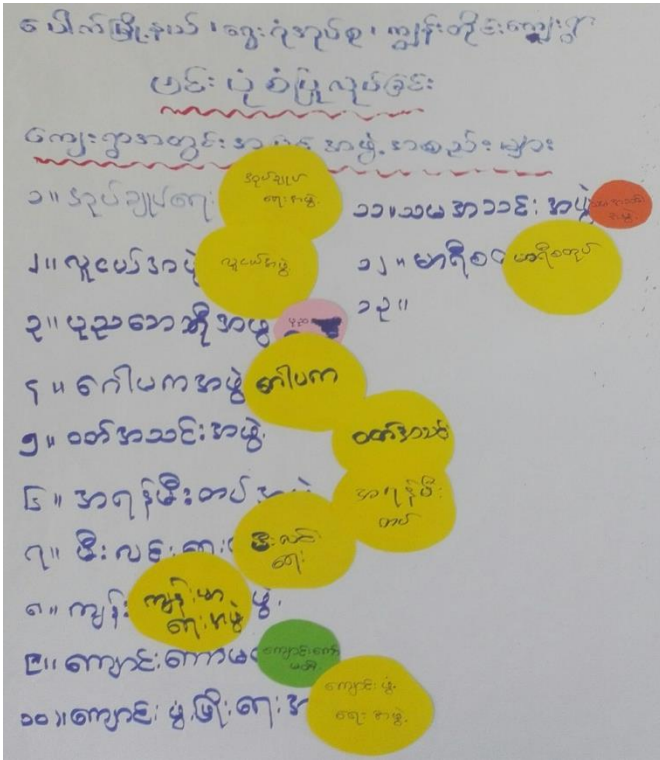 ပေါက်မြို့နယ်၊ ရွေးရုံအုပ်စု၊ ကျွန်းတိုင်းကျေးရွာ
ဗင်းပုံစံပြုလုပ်ခြင်း
ကျေးရွာအတွင်း အဖွဲ့အစည်းများ
၁။ အုပ်ချုပ်ရေး အုပ်ချုပ်ရေးအဖွဲ့
၂။ လူငယ်အဖွဲ့ လူငယ်အဖွဲ့
၃။ ပုညဘောဆိုအဖွဲ့ ပုည
၄။ ဂေါပကအဖွဲ့ ဂေါပက
၅။ ဝတ်အသင်းအဖွဲ့ ဝတ်အသင်း
၆။ အရန်မီးတပ် အရန်မီးတပ်
၇။ မီးလင်းရေး မီးလင်းရေး
၈။ ကျန်း ကျန်းမာရေးအဖွဲ့ ဖွဲ့
၉။ ကျောင်းကော်မ ကျောင်းကော်မတီ
၁၀။ ကျောင်းဖွံ့ဖြိုးရေးအ ကျောင်းဖွံ့ရေးအဖွဲ့
၁၁။ သမအသင်းအဖွဲ့
၁၂။ မာရီစ မာရီစတုပ်
၁၃။